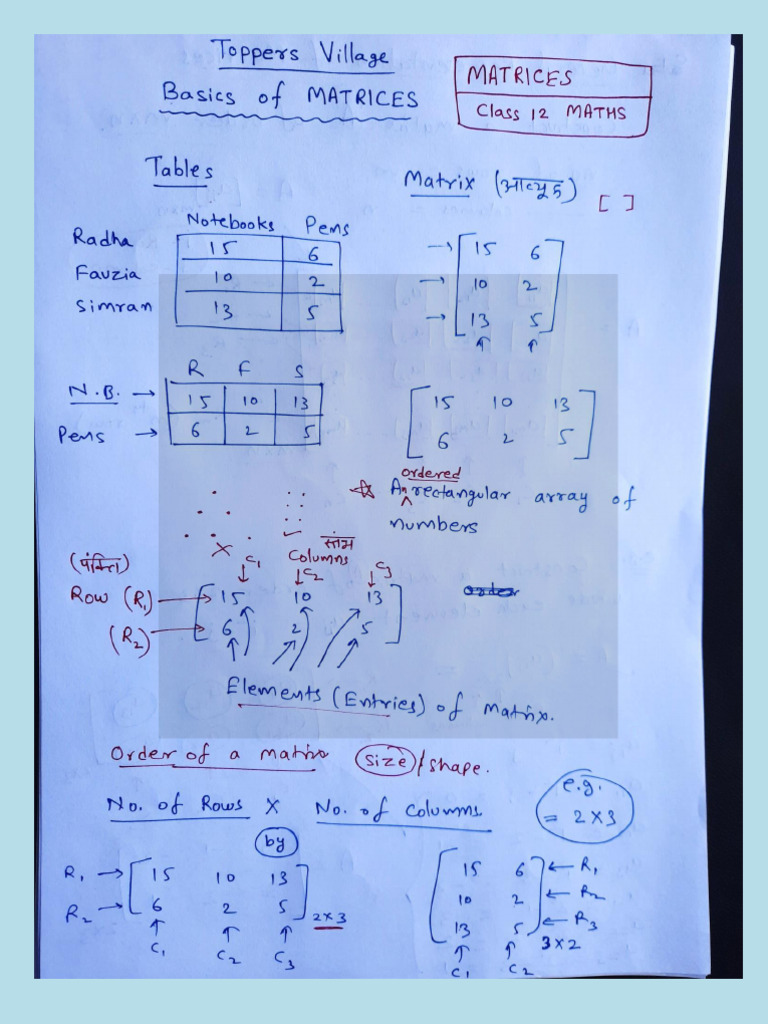 Toppers Village
Basics of MATRICES
MATRICES
Class 12 MATHS
Tables
Notebooks Pens
Radha 15 6
Fauzia 10 2
Simran 13 5
Matrix (आव्यूह) [ ]
→ [ 15 6
→ 10 2
→ 13 5 ]
↑ ↑
R F S
N.B. → 15 10 13
Pens → 6 2 5
[ 15 10 13
6 2 5 ]
ordered
☆ An rectangular array of
numbers
×  ✓
(पंक्ति)
स्तंभ
Columns
C1 C2 C3
Row (R1) → [ 15 10 13
(R2) → 6 2 5 ]
order
Elements (Entries) of matrix.
Order of a matrix (size)/shape.
No. of Rows X No. of Columns
by
e.g.
= 2×3
R1 → [ 15 10 13
R2 → 6 2 5 ] 2×3
↑ ↑ ↑
C1 C2 C3
[ 15 6 ] ← R1
10 2 ← R2
13 5 ← R3
3×2
↑ ↑
C1 C2